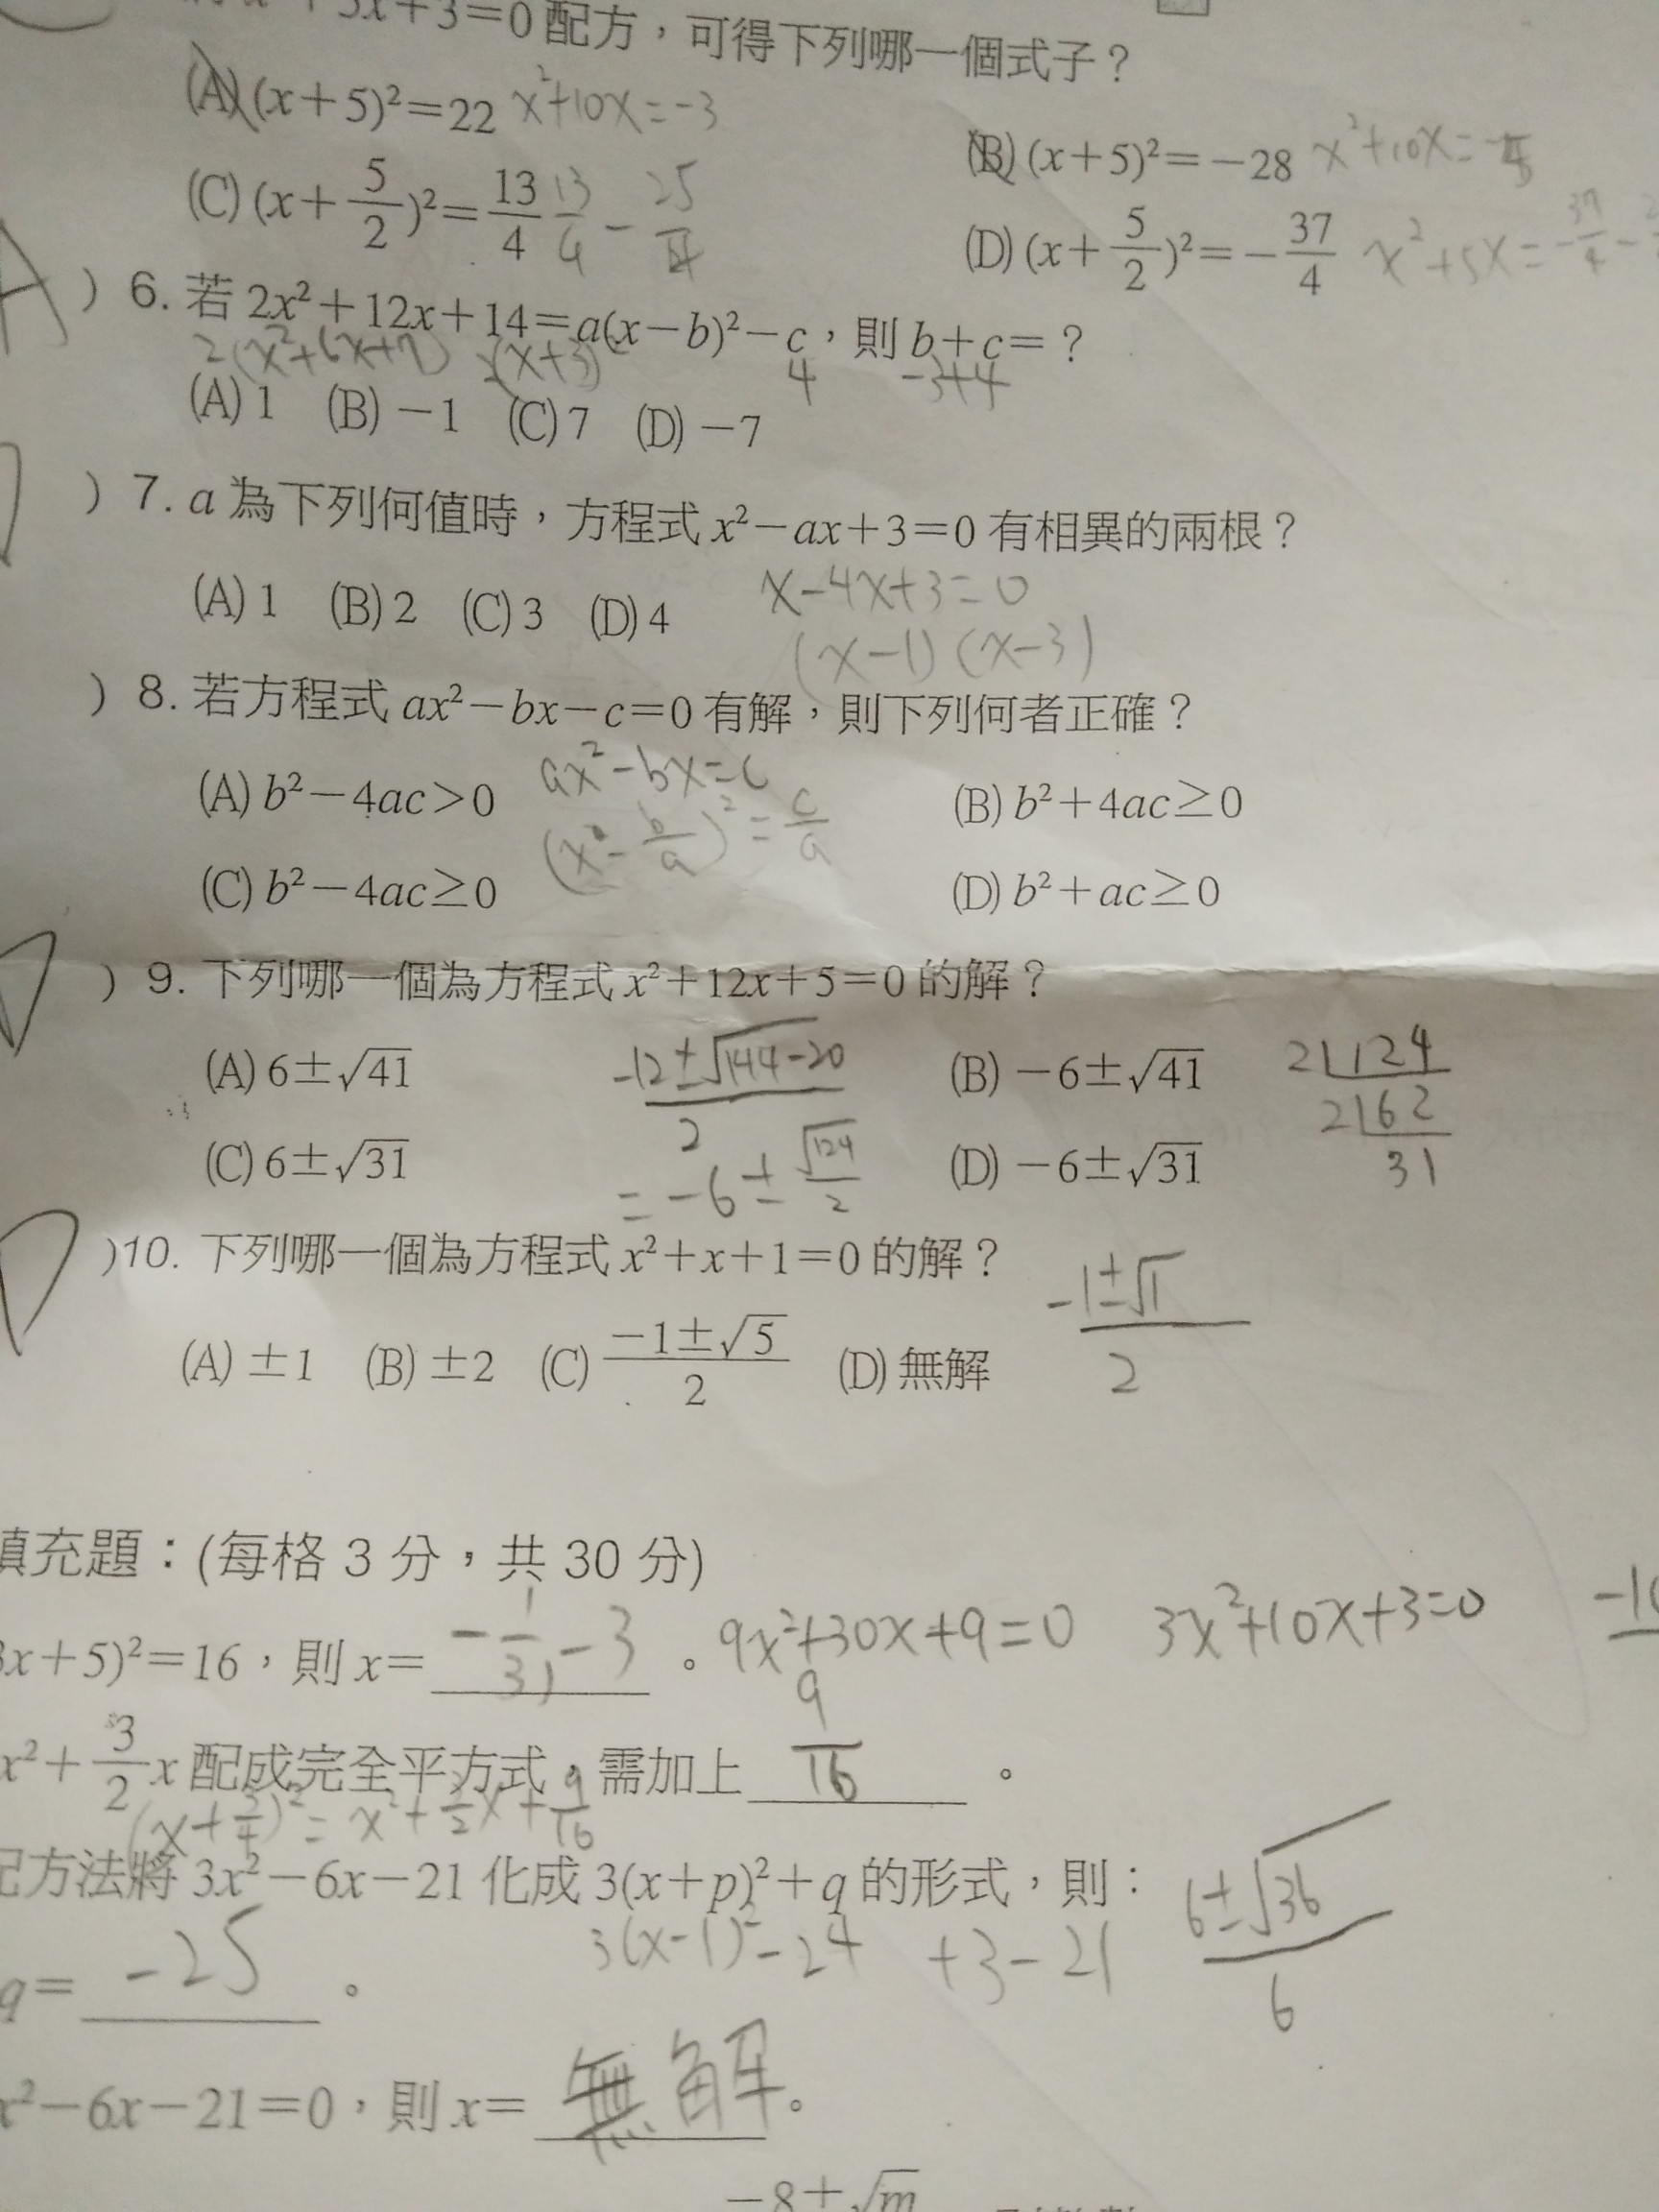 x+3=0 配方，可得下列哪一個式子？
(A) (x+5)²=22 x²+10x=-3
(B) (x+5)²=-28 x²+10x=
(C) (x+5/2)²=13/4 13/4 - 25/4
(D) (x+5/2)²=-37/4 x²+5x=-37/4-
A ) 6. 若 2x²+12x+14=a(x-b)²-c，則 b+c=？
2(x²+6x+7) (x+3) 4 -3+4
(A) 1 (B) -1 (C) 7 (D) -7
) 7. a 為下列何值時，方程式 x²-ax+3=0 有相異的兩根？
(A) 1 (B) 2 (C) 3 (D) 4 x-4x+3=0
(x-1)(x-3)
) 8. 若方程式 ax²-bx-c=0 有解，則下列何者正確？
ax²-bx=c
(A) b²-4ac>0 (B) b²+4ac≥0
(x-b/a)²=c/a
(C) b²-4ac≥0 (D) b²+ac≥0
D ) 9. 下列哪一個為方程式 x²+12x+5=0 的解？
(A) 6±√41 (-12±√144-20)/2 (B) -6±√41 2|124
2|62
31
(C) 6±√31 =-6±√124/2 (D) -6±√31
D )10. 下列哪一個為方程式 x²+x+1=0 的解？
(A) ±1 (B) ±2 (C) (-1±√5)/2 (D) 無解 (-1±√1)/2
填充題：(每格 3 分，共 30 分)
3x+5)²=16，則 x= -1/3, -3 。 9x²+30x+9=0 3x²+10x+3=0
x²+3/2x 配成完全平方式，需加上 9/16 。
(x+3/4)²=x²+3/2x+9/16
配方法將 3x²-6x-21 化成 3(x+p)²+q 的形式，則：
3(x-1)²-24 +3-21 (6±√36)/6
q= -25 。
x²-6x-21=0，則 x= 無解 。
-8±√m